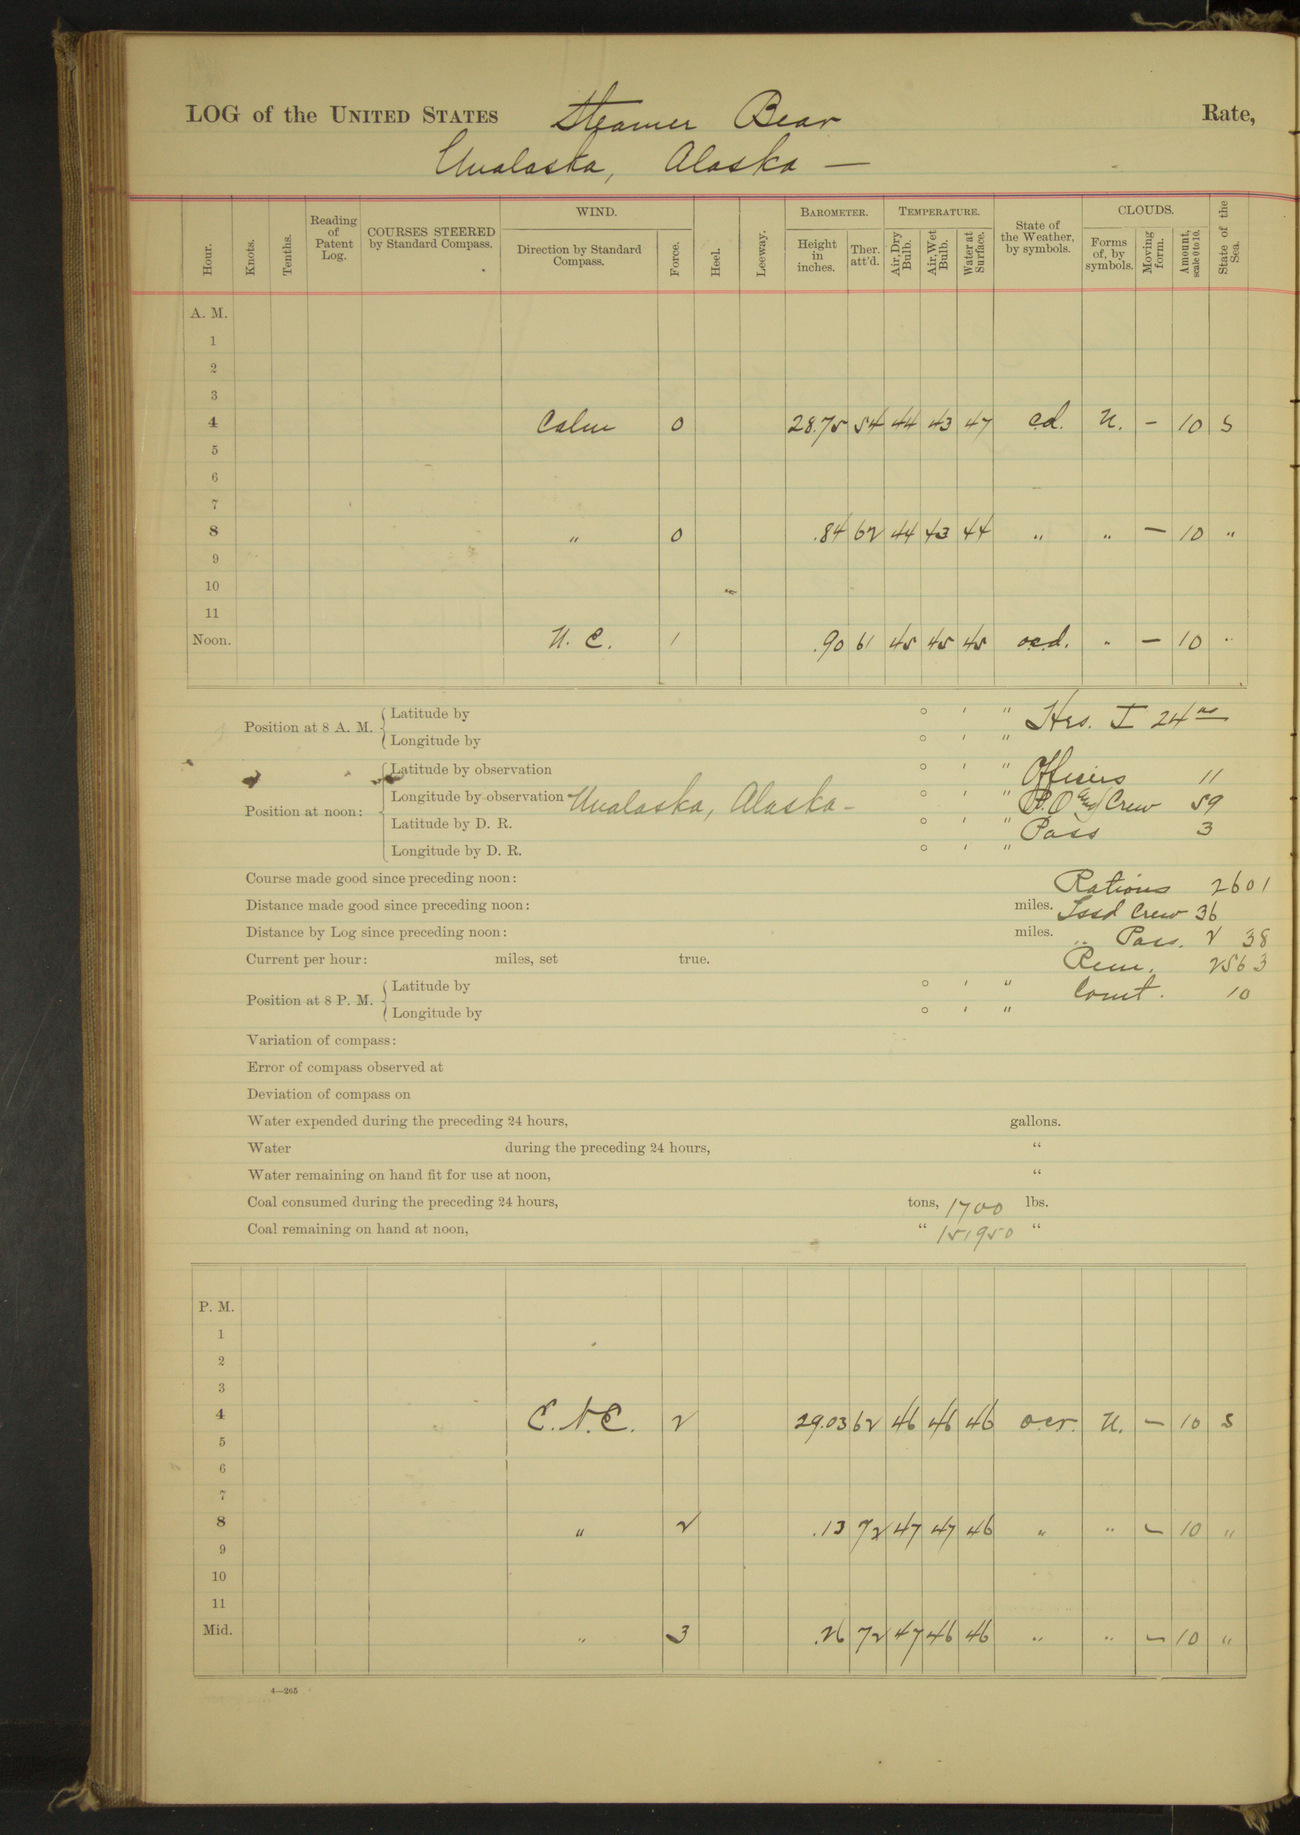 LOG of the UNITED STATES Steamer Bear Rate,
Unalaska, Alaska —
Hour. Knots. Tenths. Reading of Patent Log. COURSES STEERED by Standard Compass. WIND. Direction by Standard Compass. Force. Heel. Leeway. BAROMETER. Height in inches. Ther. att'd. TEMPERATURE. Air, Dry Bulb. Air, Wet Bulb. Water at Surface. State of the Weather, by symbols. CLOUDS. Forms of, by symbols. Moving form. Amount, scale 0 to 10. State of the Sea.
A. M.
1
2
3
4 Calm 0 28.75 54 44 43 47 cd. N. – 10 S
5
6
7
8 " 0 .84 62 44 43 44 " " – 10 "
9
10
11
Noon. N. E. 1 .90 61 45 45 45 ocd. " – 10 "
Position at 8 A. M. Latitude by ° ' " Hrs. I 24 ns
Longitude by ° ' "
Position at noon: Latitude by observation ° ' " Officers 11
Longitude by observation Unalaska, Alaska – ° ' " P.O. & Crew 59
Latitude by D. R. ° ' " Pass 3
Longitude by D. R. ° ' "
Course made good since preceding noon: Rations 2601
Distance made good since preceding noon: miles. Issd Crew 36
Distance by Log since preceding noon: miles. " Pass. 2 38
Current per hour: miles, set true. Rem. 2563
Position at 8 P. M. Latitude by ° ' " Comt. 10
Longitude by ° ' "
Variation of compass:
Error of compass observed at
Deviation of compass on
Water expended during the preceding 24 hours, gallons.
Water during the preceding 24 hours, "
Water remaining on hand fit for use at noon, "
Coal consumed during the preceding 24 hours, tons, 1700 lbs.
Coal remaining on hand at noon, " 151950 "
P. M.
1
2
3
4 E. N. E. 2 29.03 62 46 46 46 ocr. N. – 10 S
5
6
7
8 " 2 .13 72 47 47 46 " " – 10 "
9
10
11
Mid. " 3 .26 72 47 46 46 " " – 10 "
4—265